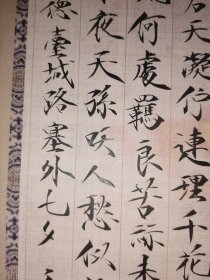 天凝佇連理千花
何處羈良苦未
夜天孫咲人愁似
德臺城路塞外七夕